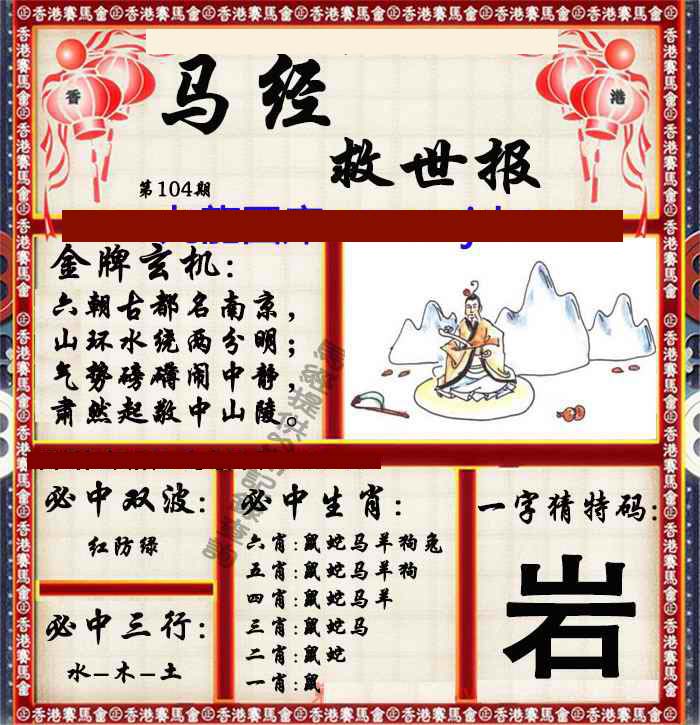 香港賽馬會
香
港
马经
救世报
第104期
金牌玄机:
六朝古都名南京,
山环水绕两分明;
气势磅礴闹中静,
肃然起敬中山陵。
必中双波:
红防绿
必中三行:
水-木-土
必中生肖:
六肖:鼠蛇马羊狗兔
五肖:鼠蛇马羊狗
四肖:鼠蛇马羊
三肖:鼠蛇马
二肖:鼠蛇
一肖:鼠
一字猜特码:
岩